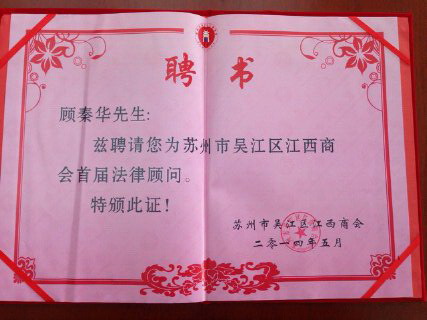 聘书
顾秦华先生:
兹聘请您为苏州市吴江区江西商
会首届法律顾问。
特颁此证!
苏州市吴江区江西商会
二〇一四年五月